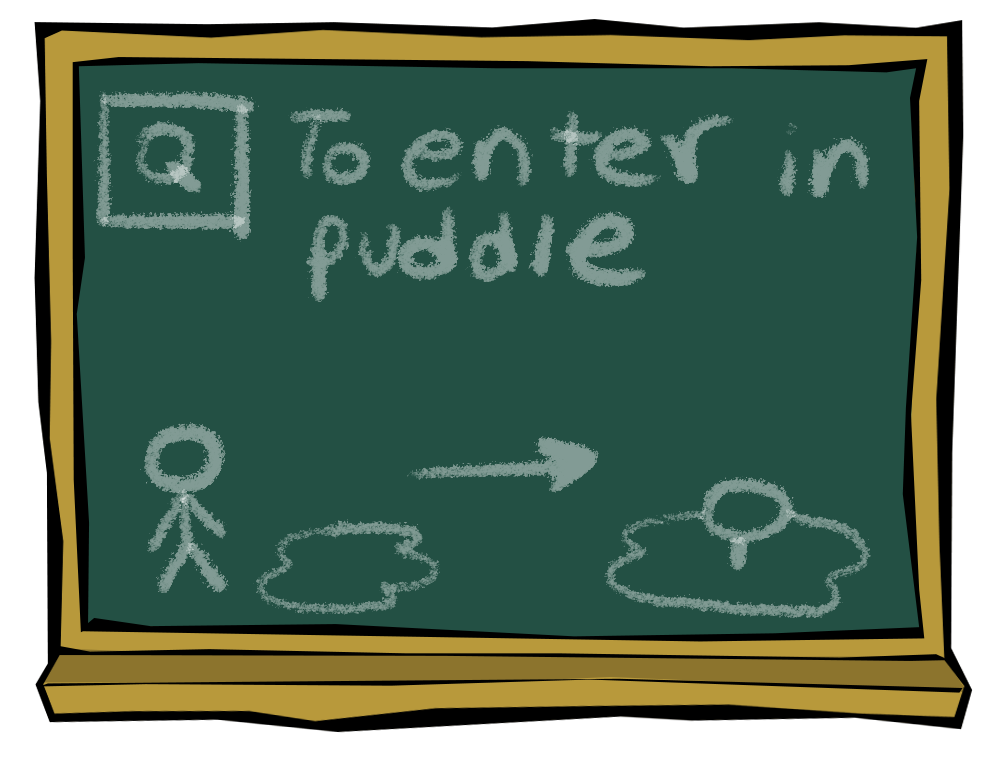 Q To enter in
puddle